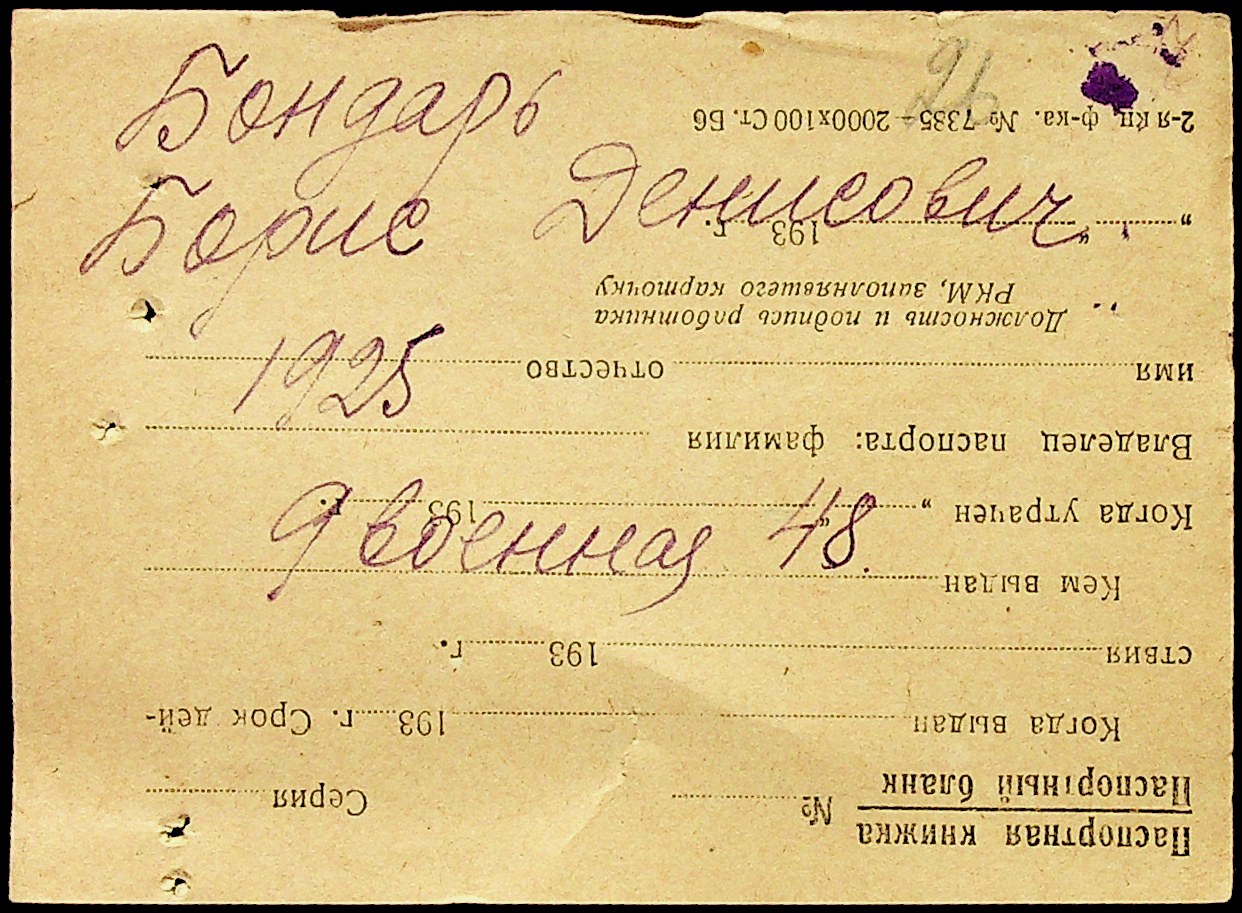 Бондарь
Борис Денисович
1925
9 военная 48
Паспортная книжка
Паспортный бланк
№ Серия
Когда выдан 193 г. Срок дей-
ствия 193 г.
Кем выдан
Когда утрачен „ “ 193 г.
Владелец паспорта: фамилия
имя отчество
Должность и подпись работника
РКМ, заполнявшего карточку
„ “ 193 г.
2-я кц. ф-ка. № 7385 — 2000х100 Ст. Б6